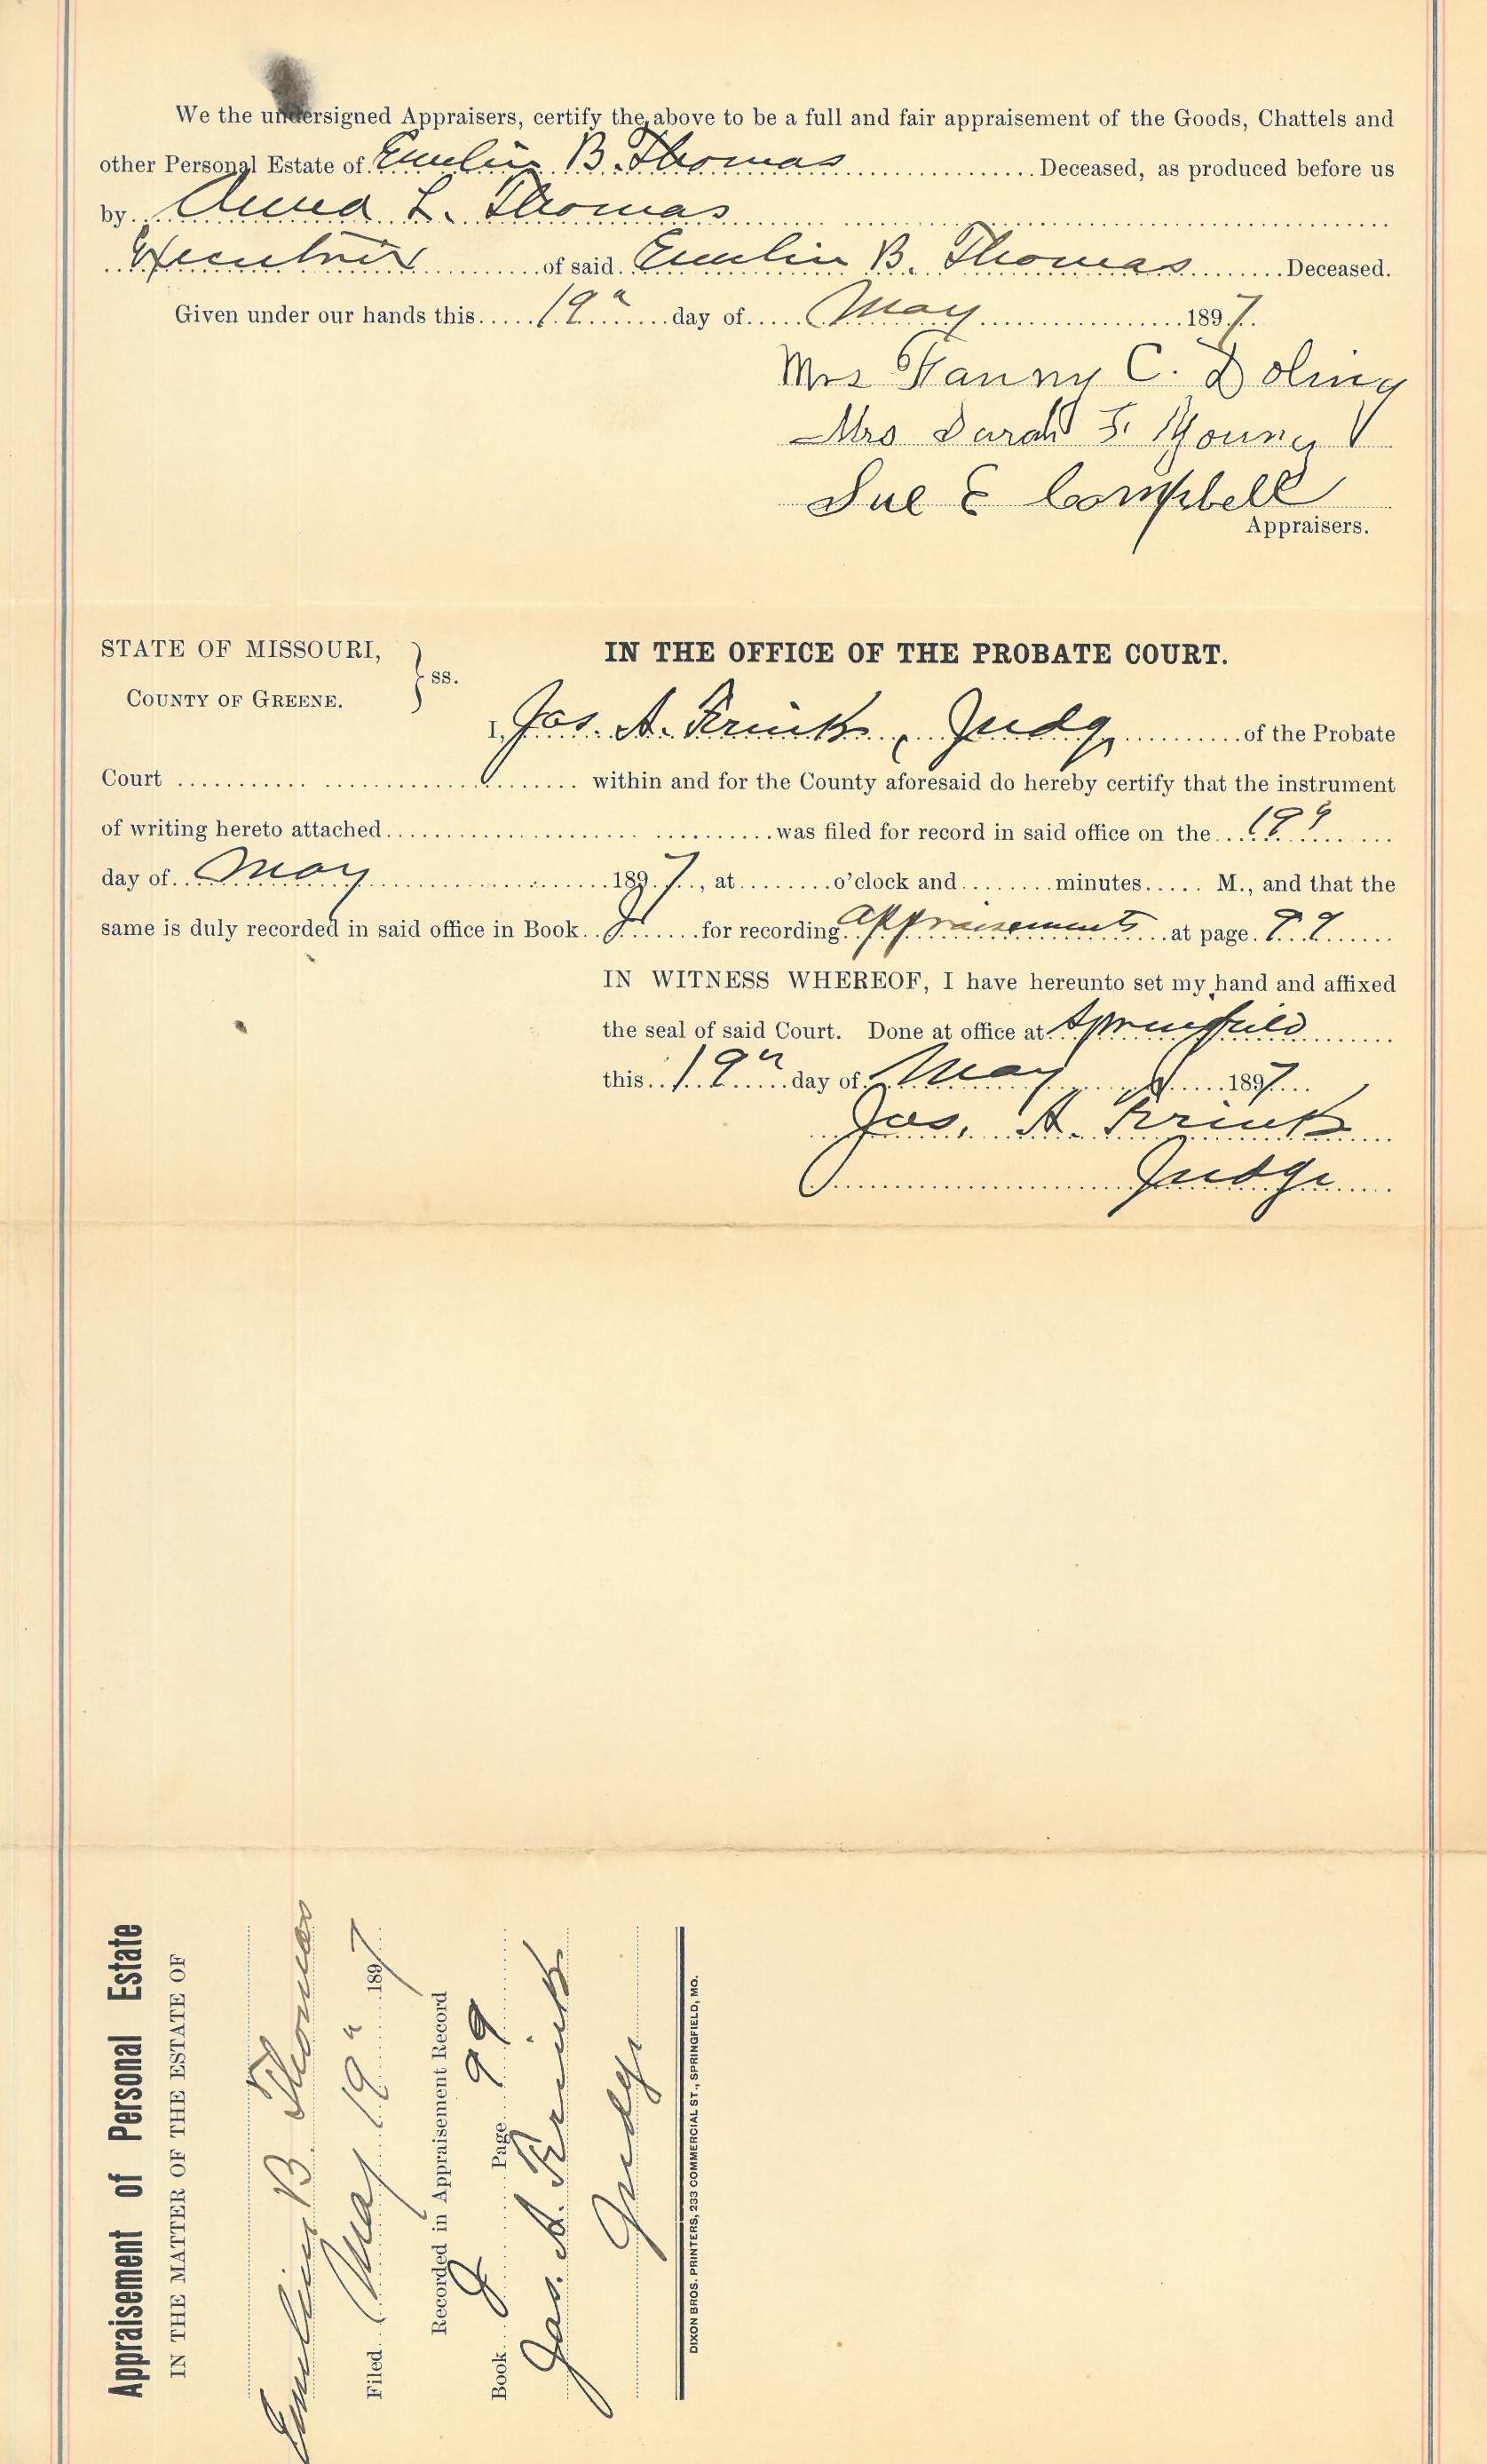 We the undersigned Appraisers, certify the above to be a full and fair appraisement of the Goods, Chattels and
other Personal Estate of Emlin B. Thomas Deceased, as produced before us
by Anna L. Thomas
Executrix of said Emlin B. Thomas Deceased.
Given under our hands this 19" day of May 1897.
Mrs Fanny C. Doling
Mrs Sarah F. Young
Sue E Campbell
Appraisers.
STATE OF MISSOURI,
COUNTY OF GREENE. } ss.
IN THE OFFICE OF THE PROBATE COURT.
I, Jas. A. Frink, Judge of the Probate
Court within and for the County aforesaid do hereby certify that the instrument
of writing hereto attached was filed for record in said office on the 19"
day of May 1897, at o'clock and minutes M., and that the
same is duly recorded in said office in Book for recording appraisements at page 99
IN WITNESS WHEREOF, I have hereunto set my hand and affixed
the seal of said Court. Done at office at Springfield
this 19" day of May 1897
Jas. A. Frink
Judge
Appraisement of Personal Estate
IN THE MATTER OF THE ESTATE OF
Emlin B. Thomas
Filed May 19" 1897
Recorded in Appraisement Record
Book Page 99
Jas. A. Frink
Judge
DIXON BROS. PRINTERS, 233 COMMERCIAL ST., SPRINGFIELD, MO.